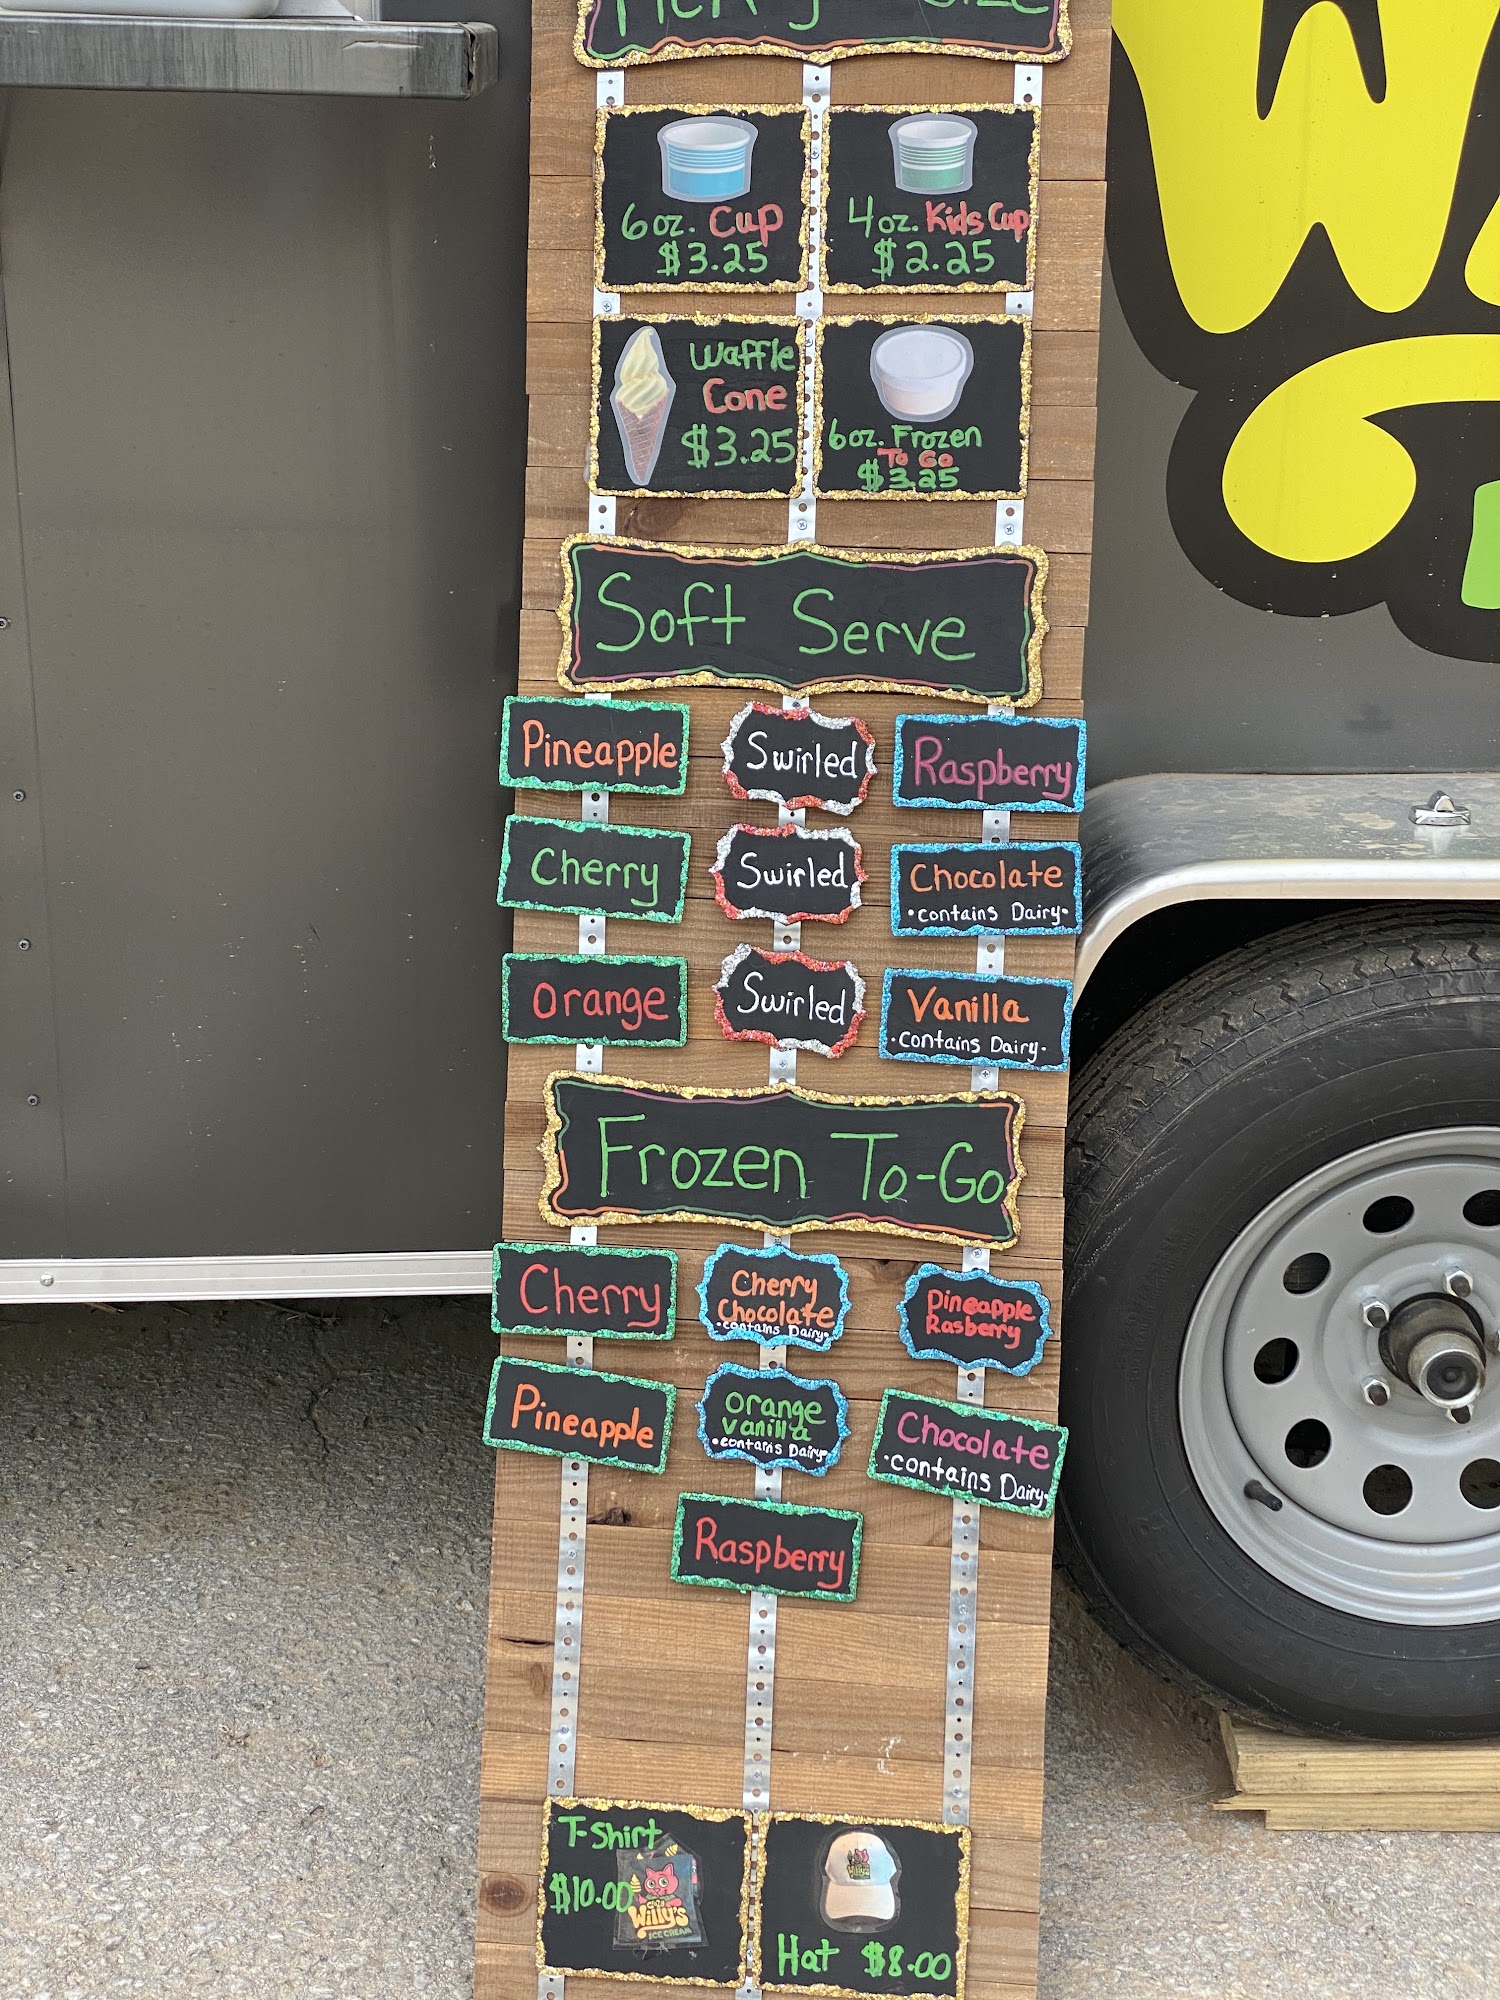 Pick
Size
6oz. Cup
$3.25
4oz. Kids Cup
$2.25
Waffle
Cone
$3.25
6oz. Frozen
To Go
$3.25
Soft Serve
Pineapple
Swirled
Raspberry
Cherry
Swirled
Chocolate
•contains Dairy•
Orange
Swirled
Vanilla
•contains Dairy•
Frozen To-Go
Cherry
Cherry
Chocolate
•contains Dairy•
Pineapple
Rasberry
Pineapple
Orange
Vanilla
•contains Dairy•
Chocolate
•contains Dairy•
Raspberry
T-Shirt
$10.00
Willy's
ICE CREAM
Hat $8.00